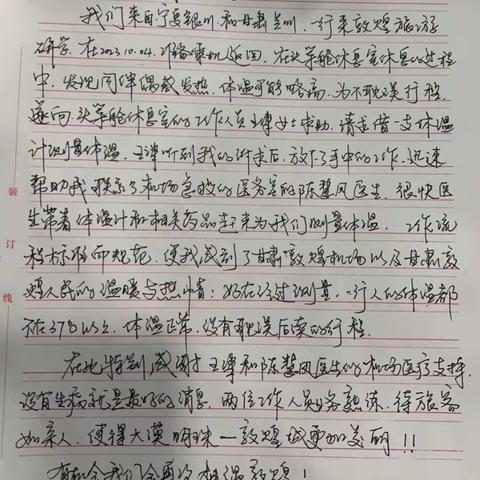 我们来自宁夏银川和甘肃兰州，一行来敦煌旅游
研学，在2023.10.04.准备乘机返回，在头等舱休息室休息的过程
中，发现同伴偶感发热，体温可能略高，为不耽误行程，
遂向头等舱休息室的工作人员王溥女士求助，请求借一支体温
计测量体温，王溥听到我的诉求后，放下了手中的工作，迅速
帮助我联系了机场急救的医务室的陈慧风医生，很快医
生带着体温计和相关药品赶来为我们测量体温，工作流
程标准而规范，使我感到了甘肃敦煌机场以及甘肃敦
煌人民的温暖与热情；好在经过测量，一行人的体温都
不在37℃以上，体温正常，没有耽误后续的行程。
在此特别感谢王溥和陈慧风医生的机场医疗支持，
没有生病就是最好的消息，两位工作人员业务熟练，待旅客
如亲人，使得大漠明珠—敦煌城更加美丽！！
有机会我们会再次相遇敦煌！
装
订
线